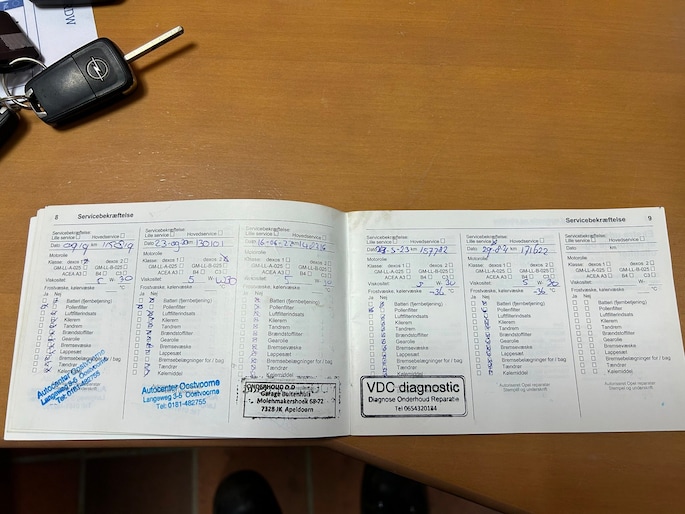 8 Servicebekræftelse
Servicebekræftelse
Lille service Hovedservice
Dato km
Motorolie
Klasse: dexos 1 dexos 2
GM-LL-A-025 GM-LL-B-025
ACEA A3 B4 C3
Viskositet: 5 W- 30
Frostvæske, kølervæske °C
Ja Nej
Batteri (fjernbetjening)
Pollenfilter
Luftfilterindsats
Kilerem
Tændrør
Brændstoffilter
Gearolie
Bremsevæske
Lappesæt
Bremsebelægninger for / bag
Tælamider
Autocenter Oostvoorne
Langeweg 3-5 Oostvoorne
Tel: 0181-482755
Servicebekræftelse
Lille service Hovedservice
Dato 23-09 km 130101
Motorolie
Klasse: dexos 1 dexos 2
GM-LL-A-025 GM-LL-B-025
ACEA A3 B4 C3
Viskositet: 5 W-30
Frostvæske, kølervæske °C
Ja Nej
Batteri (fjernbetjening)
Pollenfilter
Luftfilterindsats
Kilerem
Tændrør
Brændstoffilter
Gearolie
Bremsevæske
Lappesæt
Bremsebelægninger for / bag
Autocenter Oostvoorne
Langeweg 3-5 Oostvoorne
Tel: 0181-482755
Servicebekræftelse
Lille service Hovedservice
Dato 16-06-22 km
Motorolie
Klasse: dexos 1 dexos 2
GM-LL-A-025 GM-LL-B-025
ACEA A3 B4 C3
Viskositet: 5 W-
Frostvæske, kølervæske °C
Ja Nej
Batteri (fjernbetjening)
Pollenfilter
Luftfilterindsats
Kilerem
Tændrør
Brændstoffilter
Gearolie
Bremsevæske
Lappesæt
Bremsebelægninger for / bag
ONDERHOUD D.D
Garage Buitenhuis
Molenmakershoek 68-72
7328 JK Apeldoorn
Servicebekræftelse 9
Servicebekræftelse
Lille service Hovedservice
Dato 09-5-23 km 157782
Motorolie
Klasse: dexos 1 dexos 2
GM-LL-A-025 GM-LL-B-025
ACEA A3 B4 C3
Viskositet: 5 W- 30
Frostvæske, kølervæske -36 °C
Ja Nej
Batteri (fjernbetjening)
Pollenfilter
Luftfilterindsats
Kilerem
Tændrør
Brændstoffilter
Gearolie
Bremsevæske
Lappesæt
Bremsebelægninger for / bag
VDC diagnostic
Diagnose Onderhoud Reparatie
Tel 0654320184
Servicebekræftelse
Lille service Hovedservice
Dato km 171622
Motorolie
Klasse: dexos 1 dexos 2
GM-LL-A-025 GM-LL-B-025
ACEA A3 B4 C3
Viskositet: 5 W- 30
Frostvæske, kølervæske -36 °C
Ja Nej
Batteri (fjernbetjening)
Pollenfilter
Luftfilterindsats
Kilerem
Tændrør
Brændstoffilter
Gearolie
Bremsevæske
Lappesæt
Bremsebelægninger for / bag
Kølemiddel
Autoriseret Opel reparatør
Stempel og underskrift
Servicebekræftelse
Lille service Hovedservice
Dato km
Motorolie
Klasse: dexos 1 dexos 2
GM-LL-A-025 GM-LL-B-025
ACEA A3 B4 C3
Viskositet: W-
Frostvæske, kølervæske °C
Ja Nej
Batteri (fjernbetjening)
Pollenfilter
Luftfilterindsats
Kilerem
Tændrør
Brændstoffilter
Gearolie
Bremsevæske
Lappesæt
Bremsebelægninger for / bag
Kølemiddel
Autoriseret Opel reparatør
Stempel og underskrift